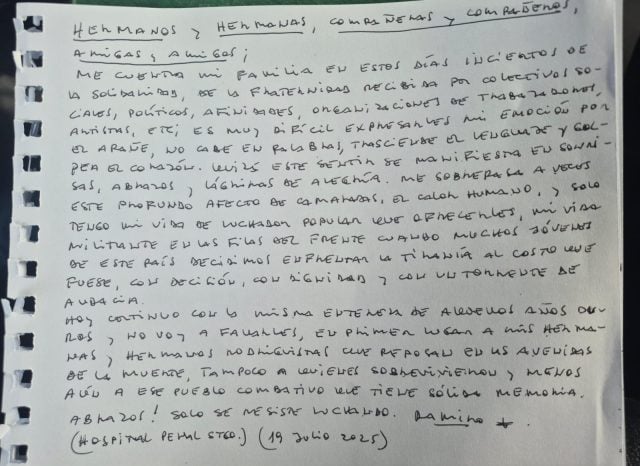 HERMANOS y HERMANAS, COMPAÑERAS y COMPAÑEROS,
AMIGAS y AMIGOS;
ME CUENTA MI FAMILIA EN ESTOS DÍAS INCIERTOS DE
LA SOLIDARIDAD, DE LA FRATERNIDAD RECIBIDA POR COLECTIVOS SO-
CIALES, POLÍTICOS, AFINIDADES, ORGANIZACIONES DE TRABAJADORES,
ARTISTAS, ETC; ES MUY DIFÍCIL EXPRESARLES MI EMOCIÓN POR
EL APAÑE, NO CABE EN PALABRAS, TRASCIENDE EL LENGUAJE y GOL-
PEA EL CORAZÓN. QUIZÁ ESTE SENTIR SE MANIFIESTA EN SONRI-
SAS, ABRAZOS y LÁGRIMAS DE ALEGRÍA. ME SOBREPASA A VECES
ESTE PROFUNDO AFECTO DE CAMARADAS, EL CALOR HUMANO, y SOLO
TENGO MI VIDA DE LUCHADOR POPULAR QUE OFRECERLES, MI VIDA
MILITANTE EN LAS FILAS DEL FRENTE CUANDO MUCHOS JÓVENES
DE ESTE PAÍS DECIDIMOS ENFRENTAR LA TIRANÍA AL COSTO QUE
FUESE, CON DECISIÓN, CON DIGNIDAD y CON UN TORRENTE DE
AUDACIA.
HOY CONTINUO CON LA MISMA ENTEREZA DE AQUELLOS AÑOS DU-
ROS y NO VOY A FALLARLES, EN PRIMER LUGAR A MIS HERMA-
NAS y HERMANOS RODRIGUISTAS QUE REPOSAN EN LAS AVENIDAS
DE LA MUERTE, TAMPOCO A QUIENES SOBREVIVIERON y MENOS
AÚN A ESE PUEBLO COMBATIVO QUE TIENE SÓLIDA MEMORIA.
ABRAZOS! SOLO SE RESISTE LUCHANDO. RAMIRO
(HOSPITAL PENAL STGO.) (19 JULIO 2025)